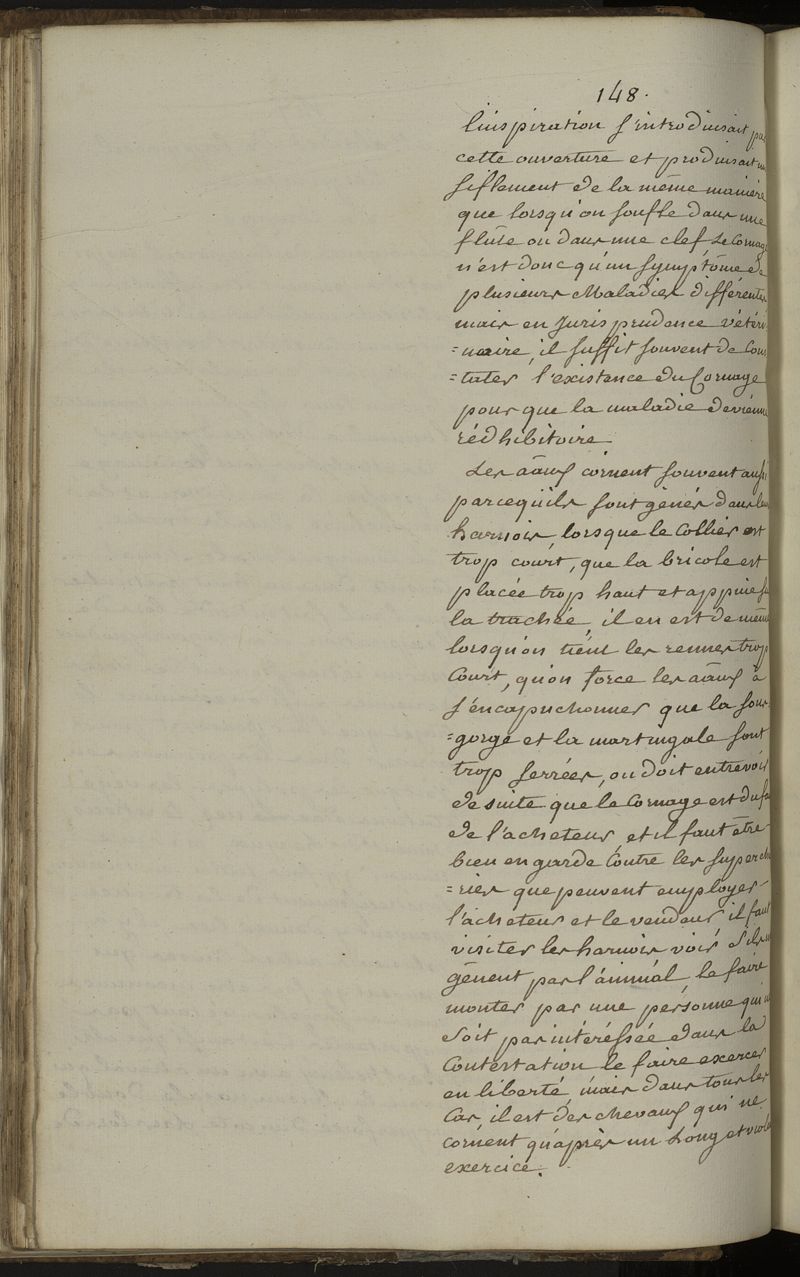 148.
l'inspiration s'introduisait par
cette ouverture et produisait un
siflement de la même manière
que lorsqu'on soufle dans une
flûte ou dans une clef, Le Cornage
n'est donc qu'un symptôme de
plusieurs Maladies différentes
mais en Jurisprudence vétéri
=naire, il suffit souvent de Cons
=tater l'existence du Cornage
pour que la maladie devienne
rédhibitoire
Les aãux cornent souvent aussi
parcequ'ils sont gènés dans leurs
harnois, lorsque le Collier est
trop court, que la bricole est
placée trop haut et appuie su
la trachée, il en est de même
lorsqu'on tient les rennes trop
Court, qu'on force les aãux à
s'encapuchonner que la sous
=gorge et la martingale sont
trop serrées, on doit entrevoir
de suite que le Cornage est du fa
de l'acheteur, et il faut être
bien en garde Contre les superche
=ries que peuvent employer
l'acheteur et le vendeur, il faut
visiter les harnois voir s'ils n
gènent pas l'animal le faire
monter par une personne qui n
soit pas intéressée dans la
Contestation le faire exercer
en liberté, mais dans tous les
Cas, il est des chevaux qui ne
cornent qu'après un Long et viole
exercice.